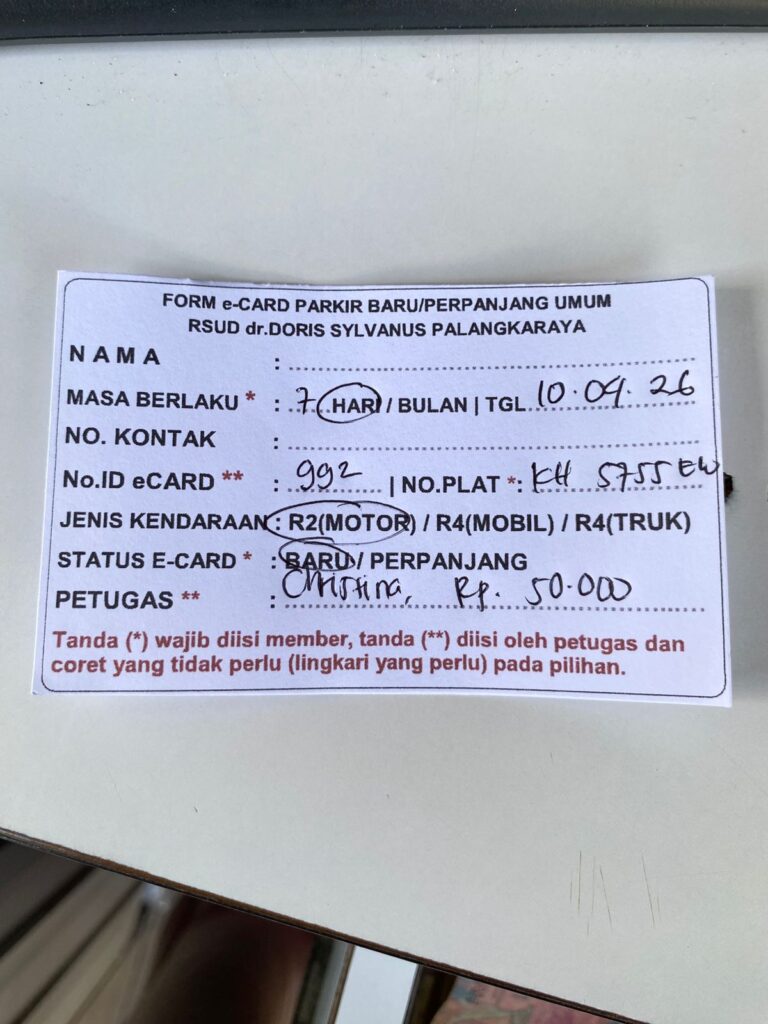 FORM e-CARD PARKIR BARU/PERPANJANG UMUM
RSUD dr.DORIS SYLVANUS PALANGKARAYA
N A M A :
MASA BERLAKU * : 7 HARI / BULAN | TGL 10.09.26
NO. KONTAK :
No.ID eCARD ** : 992 | NO.PLAT *: KH 5755 EW
JENIS KENDARAAN : R2(MOTOR) / R4(MOBIL) / R4(TRUK)
STATUS E-CARD * : BARU / PERPANJANG
PETUGAS ** : Christina, Rp. 50.000
Tanda (*) wajib diisi member, tanda (**) diisi oleh petugas dan
coret yang tidak perlu (lingkari yang perlu) pada pilihan.